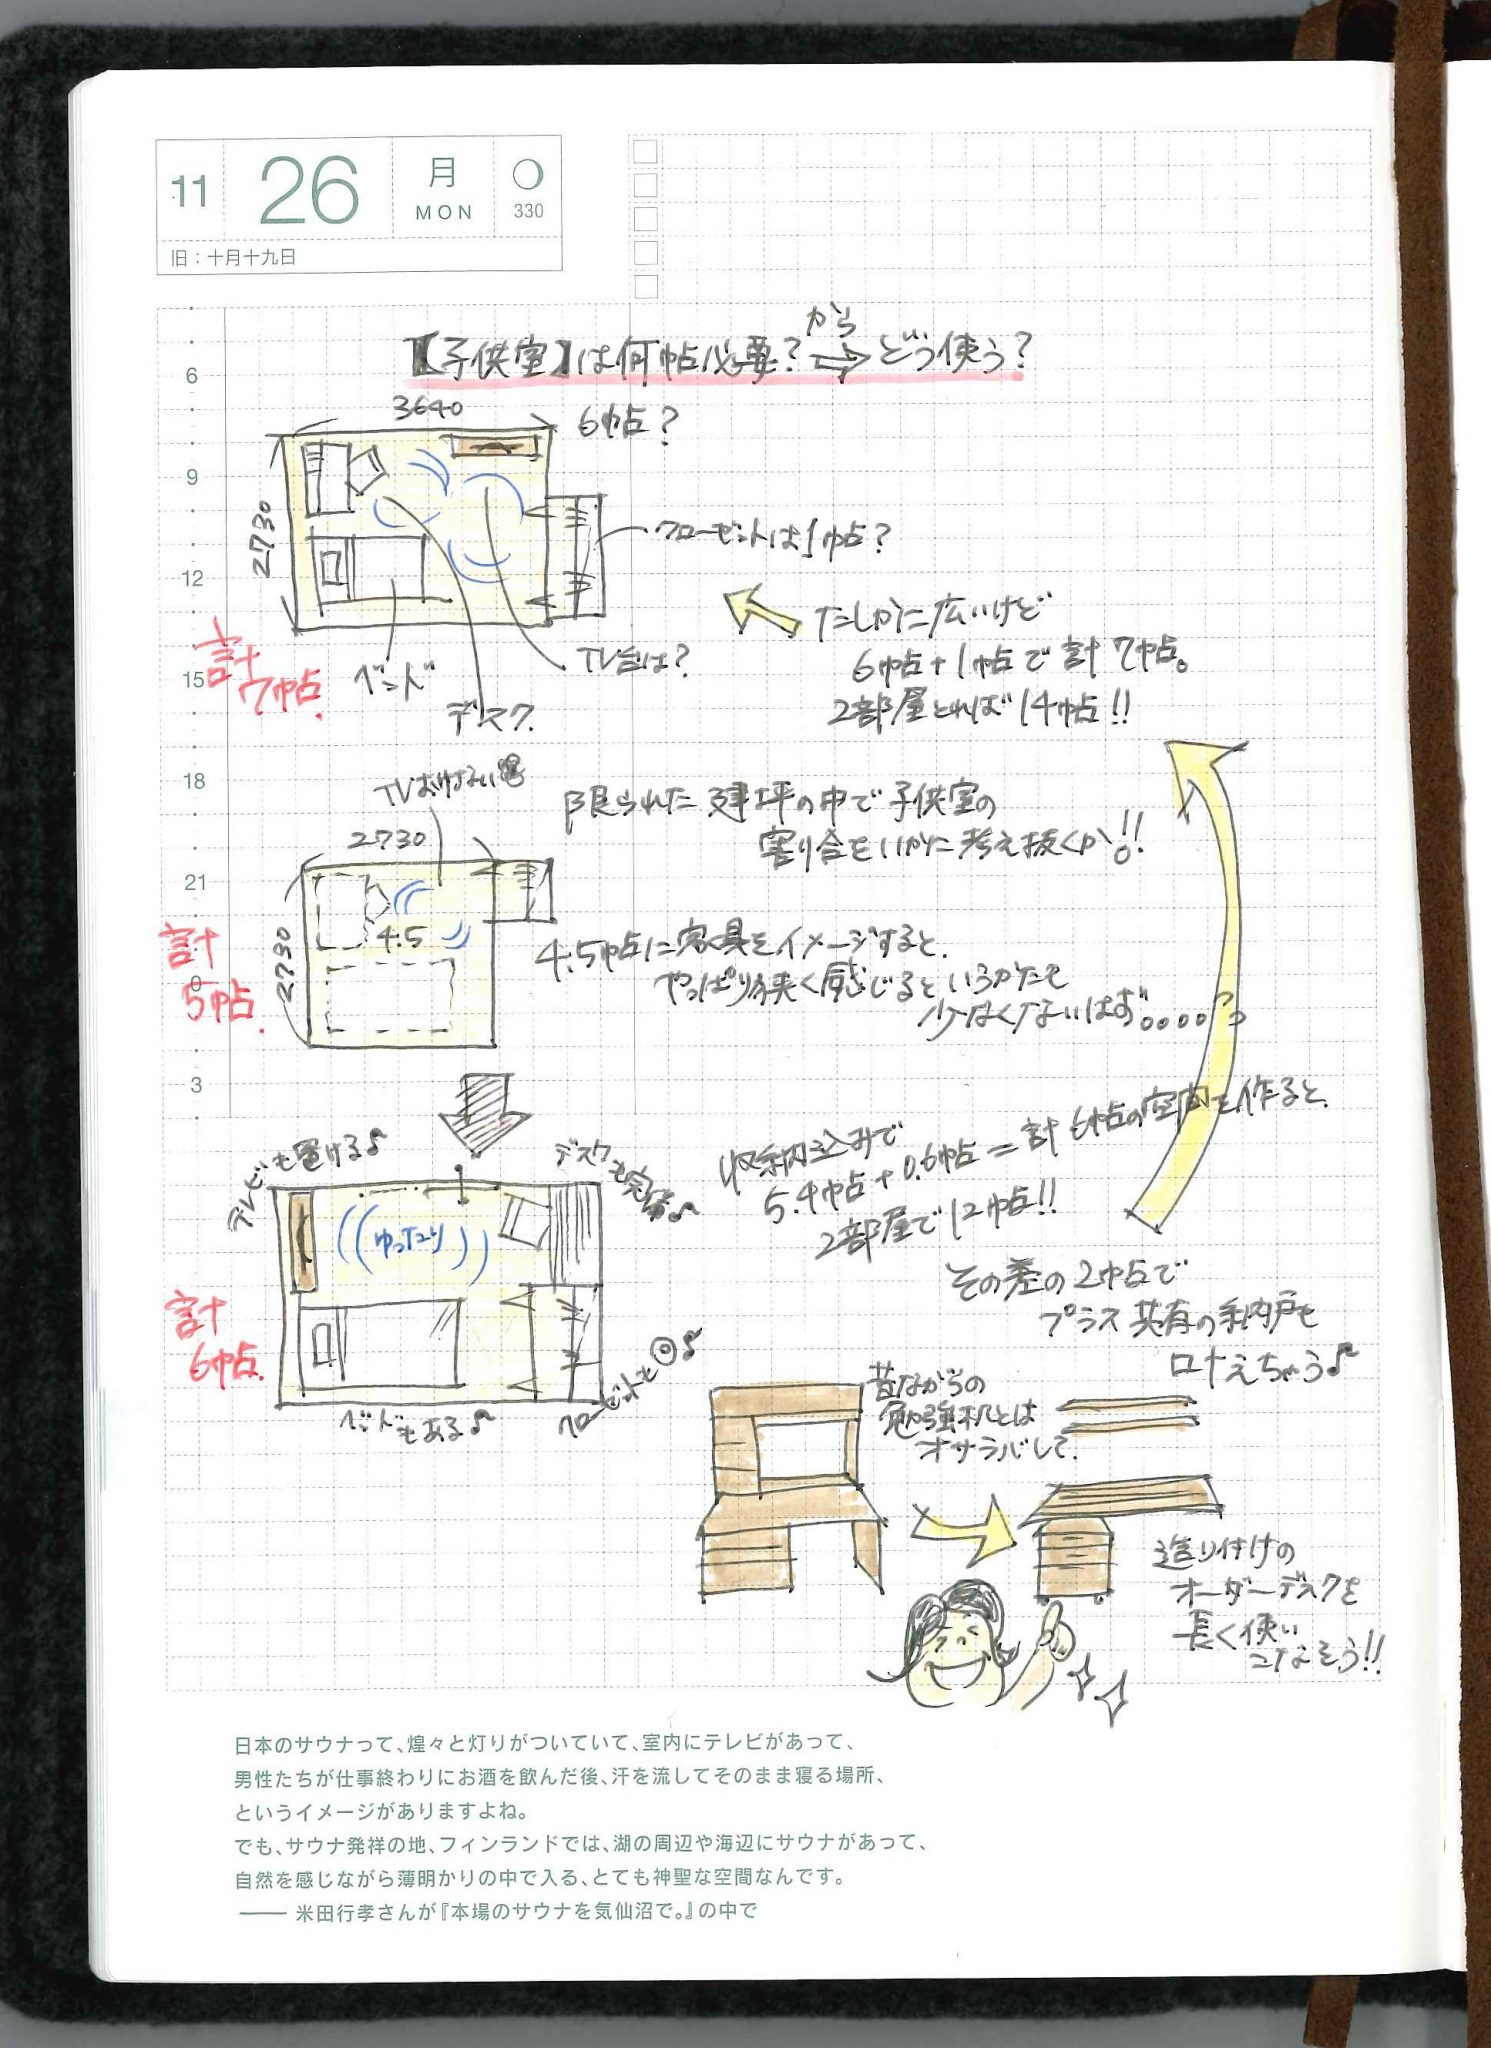 11
26
月
MON
330
旧：十月十九日
から
【子供室】は何帖必要？⇒どう使う？
6
9
12
15
18
21
0
3
3640
6帖？
2730
クローゼットは1帖？
たしかに広いけど
6帖+1帖で計7帖。
2部屋とれば14帖!!
計
7帖.
ベッド
デスク.
TV台は？
TVおけない
2730
限られた建坪の中で子供室の
割り合をいかに考え抜くか!!
2730
4.5
計
5帖.
4.5帖に家具をイメージすると、
やっぱり狭く感じるというかたも
少なくないはず。。。。。
テレビも置ける♪
デスクも完備♪
ゆったり
計
6帖.
ベッドもある♪
クローゼットも◎♪
収納込みで
5.4帖+0.6帖=計6帖の空間を作ると、
2部屋で12帖!!
その差の2帖で
プラス共有の納戸も
叶えちゃう♪
昔ながらの
勉強机とは
オサラバして、
造り付けの
オーダーデスクを
長く使い
こなそう!!
日本のサウナって、煌々と灯りがついていて、室内にテレビがあって、
男性たちが仕事終わりにお酒を飲んだ後、汗を流してそのまま寝る場所、
というイメージがありますよね。
でも、サウナ発祥の地、フィンランドでは、湖の周辺や海辺にサウナがあって、
自然を感じながら薄明かりの中で入る、とても神聖な空間なんです。
―― 米田行孝さんが『本場のサウナを気仙沼で。』の中で